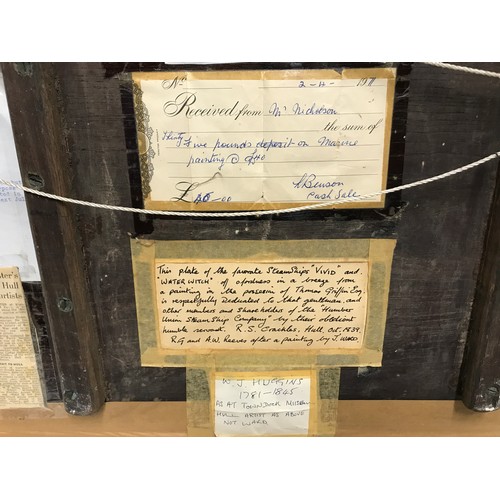 No. 2-4- 197
Received from Mr Nicholson
the sum of
Thirty Five pounds deposit on Marine
painting @ £40
£ -00 Benson
Cash Sale
This plate of the favorite SteamShips "VIVID" and
"WATER WITCH" of aforedness in a breeze from
a painting in the possesin of Thomas Griffin Esq.
is respectfully Dedicated to that gentleman, and
other members and shareholders of the "Humber
Union SteamShip Company" by their obedient
humble servant. R. S. Crackles, Hull Oct. 1839.
R.G and A.W. Reeves after a painting by J. WARD.
W. J. HUGGINS
1781-1845
AS AT TOWNDOCK MUSEUM
HULL ARTIST AS ABOVE
NOT WARD
ter's
Hull
artists